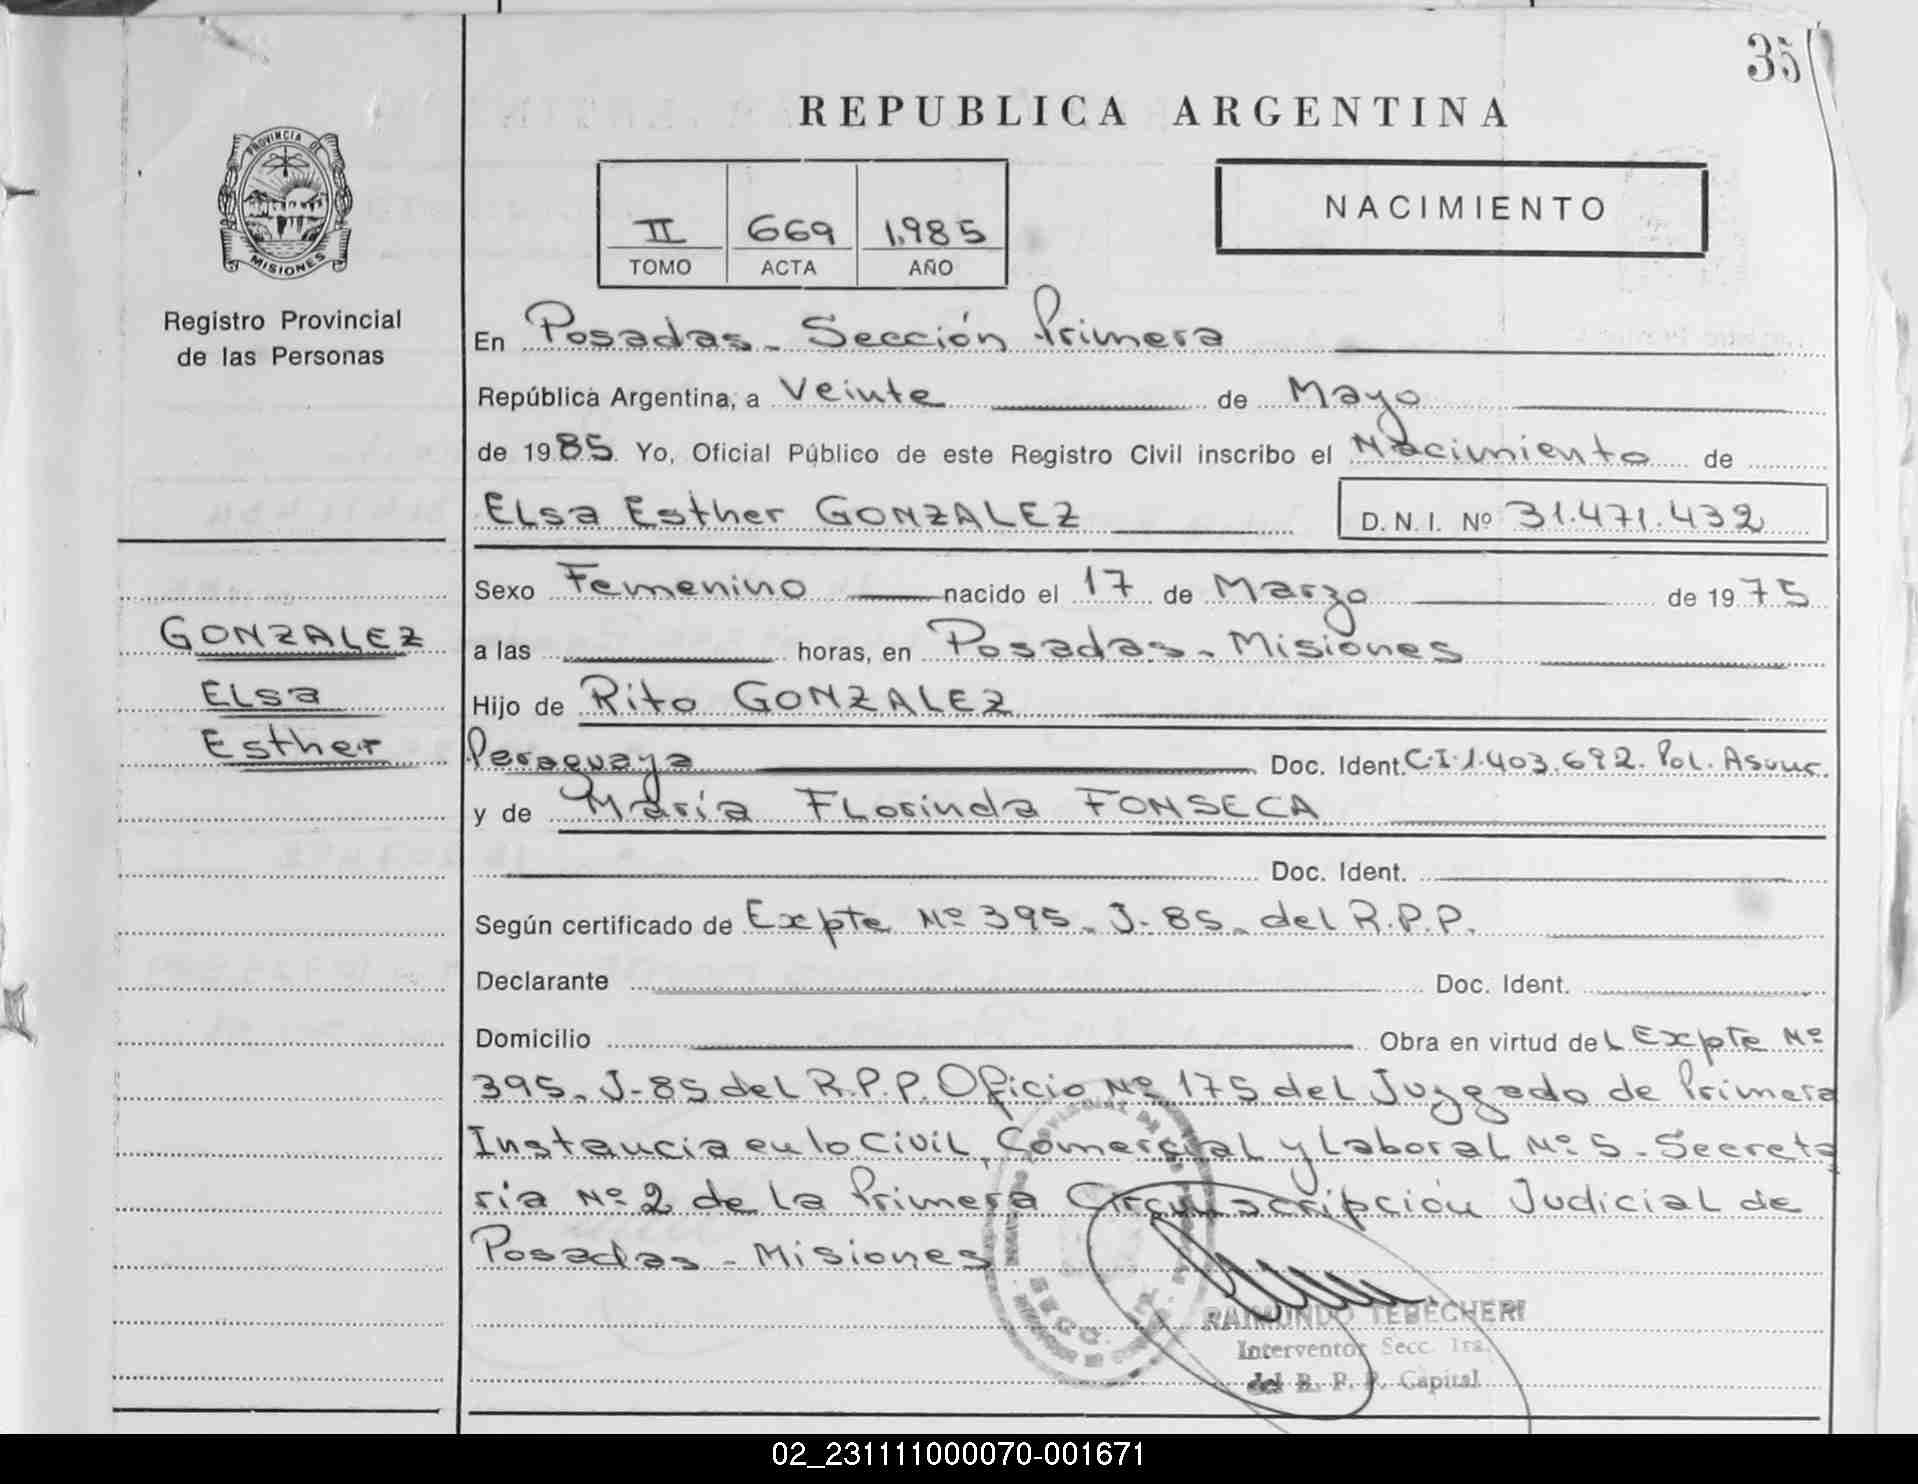 35
REPUBLICA ARGENTINA
PROVINCIA DE
MISIONES
Registro Provincial
de las Personas
II 669 1.985
TOMO ACTA AÑO
NACIMIENTO
En Posadas - Sección Primera
República Argentina, a Veinte de Mayo
de 1985. Yo, Oficial Público de este Registro Civil inscribo el Nacimiento de
ELsa Esther GONZALEZ D.N.I. Nº 31.471.432
Sexo Femenino nacido el 17 de Marzo de 1975
GONZALEZ
ELsa
Esther
a las horas, en Posadas - Misiones
Hijo de Rito GONZALEZ
Paraguaya Doc. Ident. C.I.1.403.692. Pol. Asunc.
y de María FLorinda FONSECA
Doc. Ident.
Según certificado de Expte Nº 395 - J - 85 - del R.P.P.
Declarante Doc. Ident.
Domicilio Obra en virtud del Expte Nº
395 - J-85 del R.P.P. Oficio Nº 175 del Juzgado de Primera
Instancia en lo Civil, Comercial y Laboral Nº 5 - Secreta
ria Nº 2 de la Primera Circunscripción Judicial de
Posadas - Misiones
RAIMUNDO TEBECHERI
Interventor Secc. 1ra.
del R. P. P. Capital
02_231111000070-001671